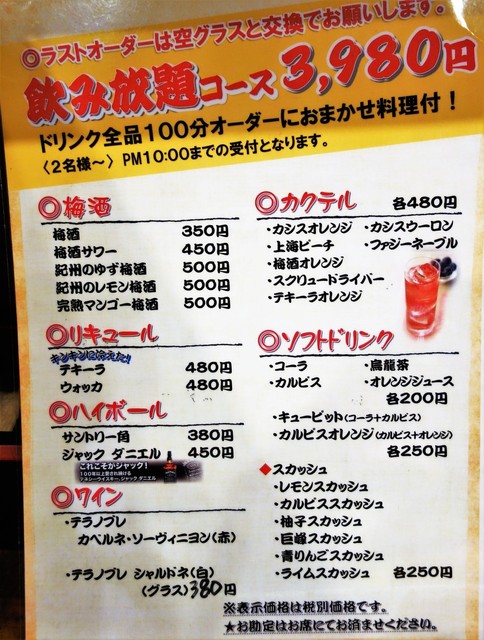 ◎ラストオーダーは空グラスと交換でお願いします。
飲み放題コース 3,980円
ドリンク全品100分オーダーにおまかせ料理付！
〈2名様～〉PM10:00までの受付となります。
◎梅酒
梅酒 350円
梅酒サワー 450円
紀州のゆず梅酒 500円
紀州のレモン梅酒 500円
完熟マンゴー梅酒 500円
◎リキュール
キンキンに冷えた!!
テキーラ 480円
ウォッカ 480円
◎ハイボール
サントリー角 380円
ジャック ダニエル 450円
これこそがジャック！
100年以上愛され続ける
テネシーウイスキー、ジャック ダニエル
◎ワイン
・テラノブレ
カベルネ・ソーヴィニヨン(赤)
・テラノブレ シャルドネ(白)
(グラス)380円
◎カクテル 各480円
・カシスオレンジ ・カシスウーロン
・上海ピーチ ・ファジーネーブル
・梅酒オレンジ
・スクリュードライバー
・テキーラオレンジ
◎ソフトドリンク
・コーラ ・烏龍茶
・カルピス ・オレンジジュース
各200円
・キューピット(コーラ+カルピス)
・カルピスオレンジ(カルピス+オレンジ)
各250円
◆スカッシュ
・レモンスカッシュ
・カルピススカッシュ
・柚子スカッシュ
・巨峰スカッシュ
・青りんごスカッシュ
・ライムスカッシュ 各250円
※表示価格は税別価格です。
★お勘定はお席にてお済ませください。